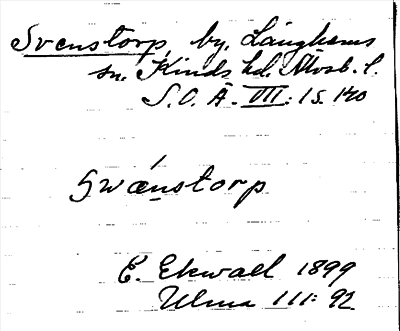 Svenstorp, by, Länghems
sn. Kinds hd. Älvsb. l.
S.O.Ä. VII: 1 s. 140
Swænstorp
E. Ekwall 1899
Ulma 111: 92